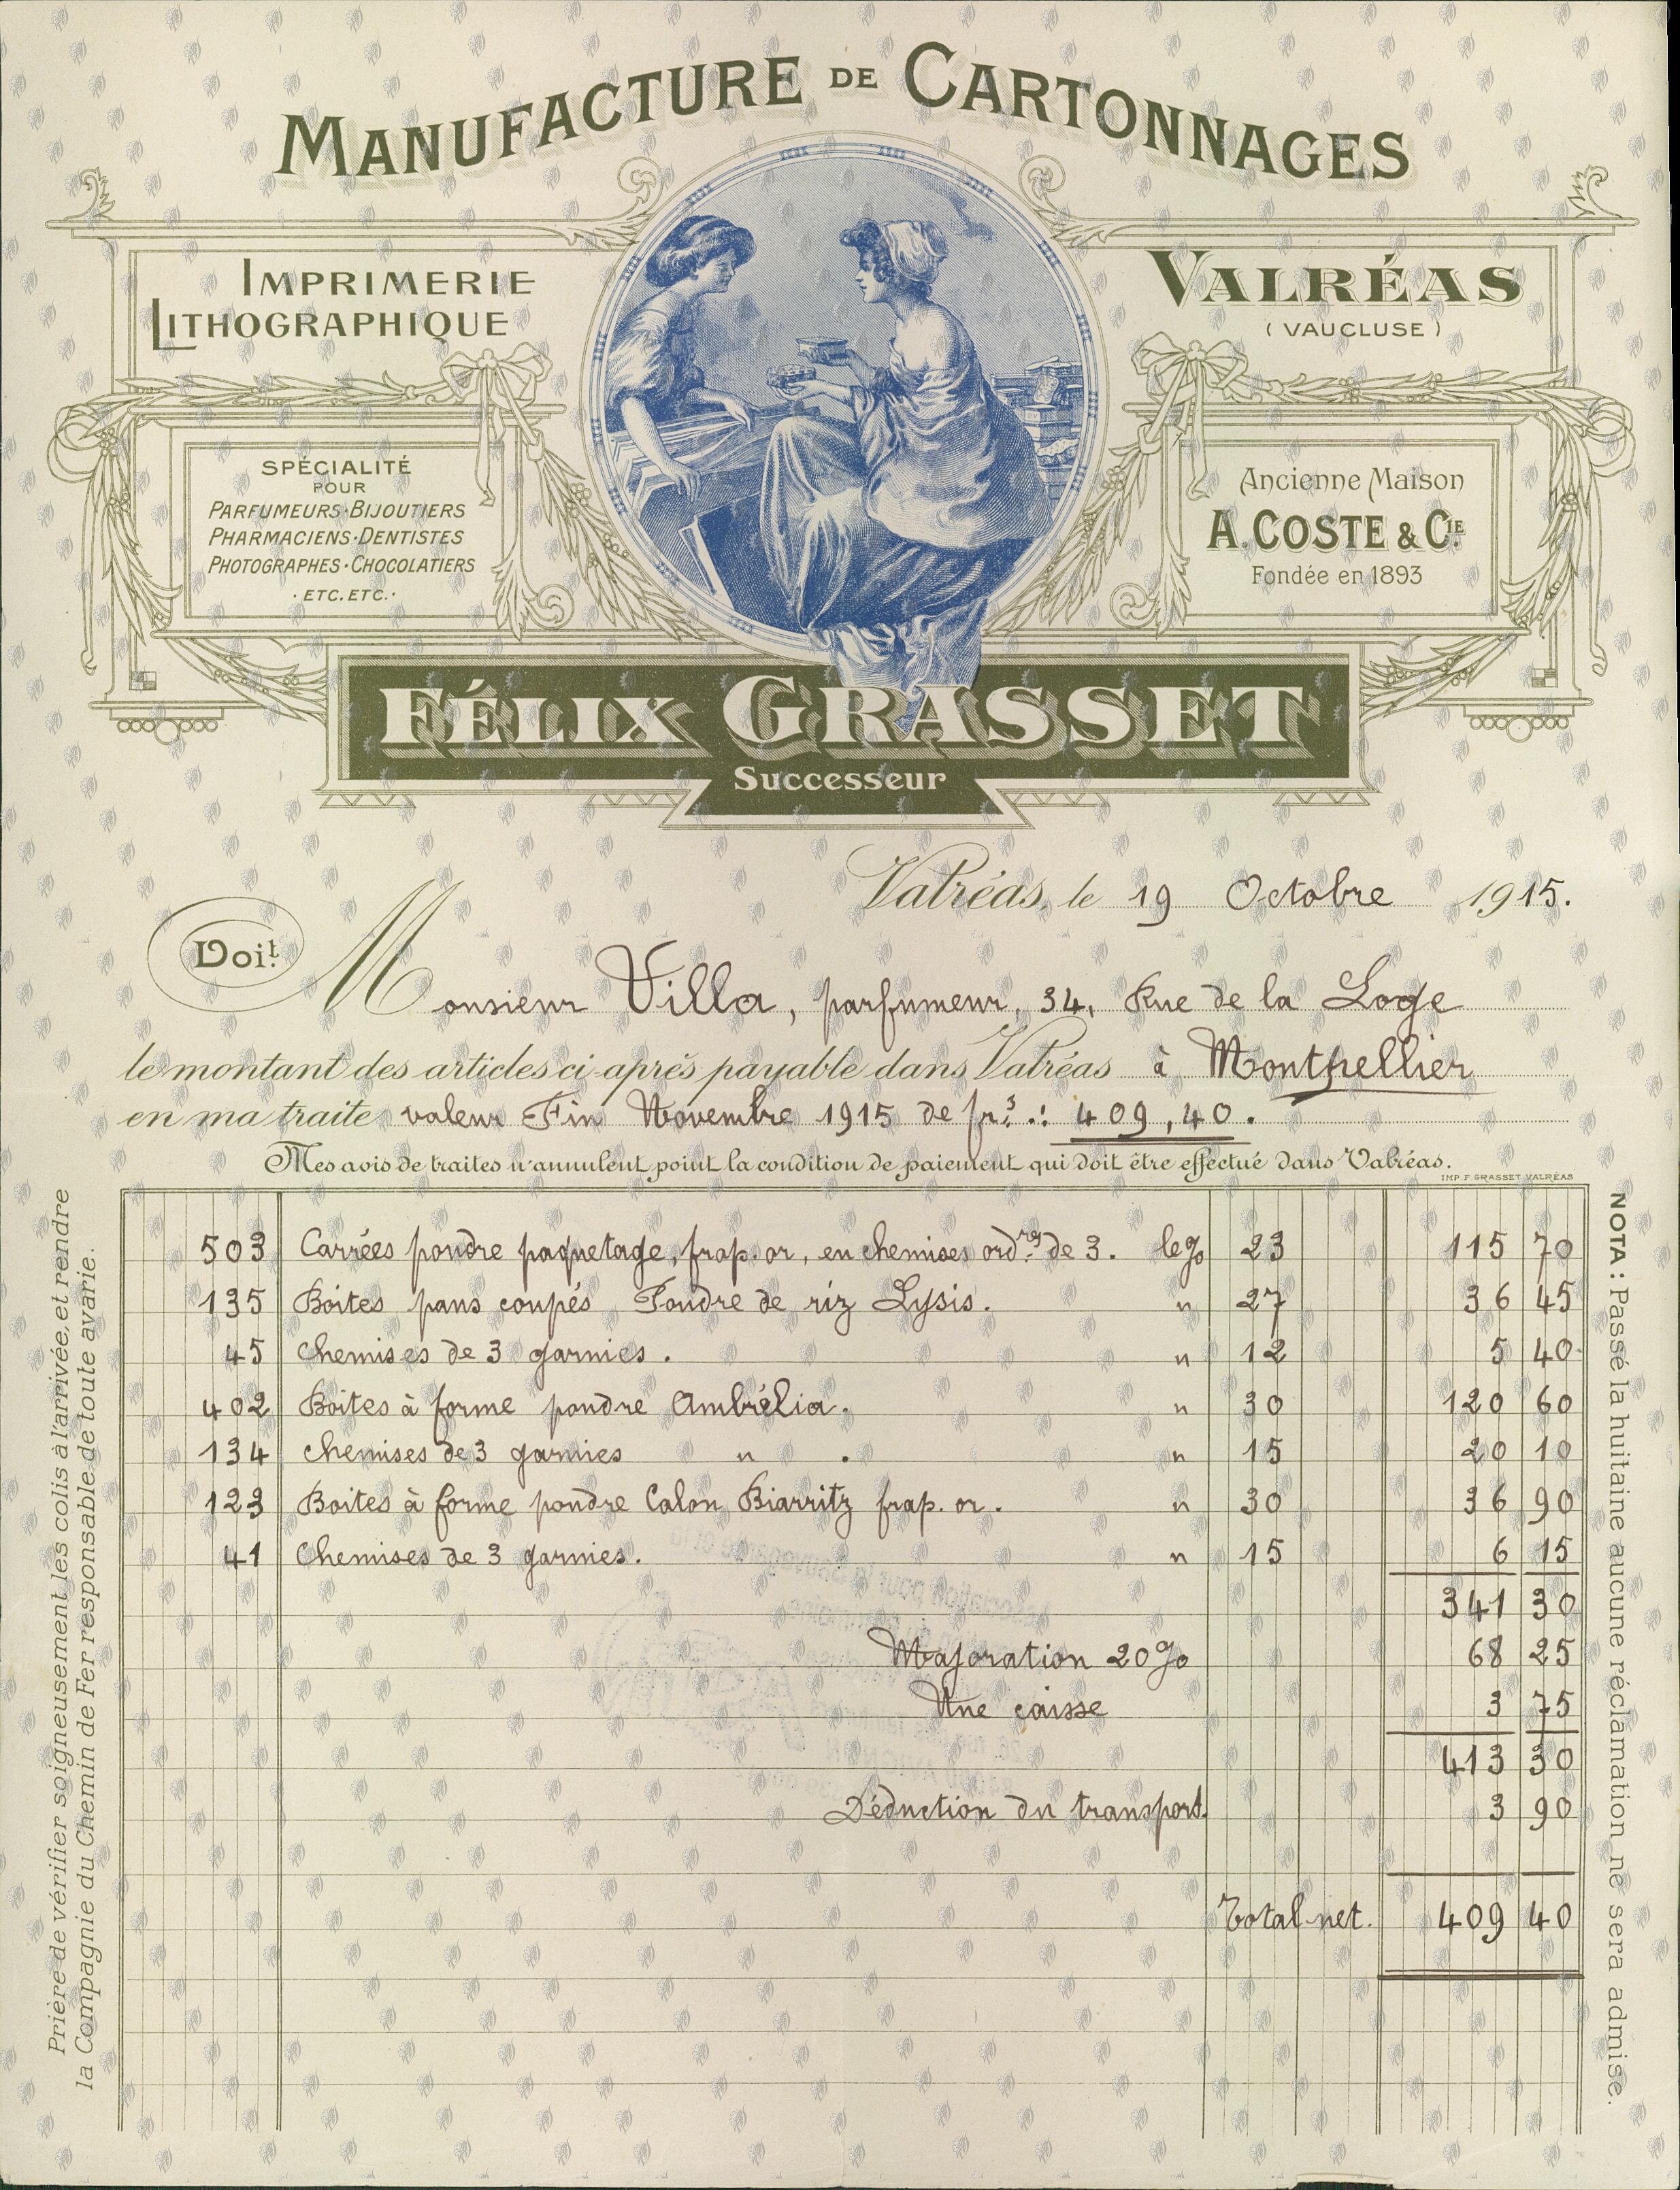 MANUFACTURE DE CARTONNAGES
IMPRIMERIE
LITHOGRAPHIQUE
VALRÉAS
(VAUCLUSE)
SPÉCIALITÉ
POUR
PARFUMEURS·BIJOUTIERS
PHARMACIENS·DENTISTES
PHOTOGRAPHES·CHOCOLATIERS
·ETC.ETC.·
Ancienne Maison
A.COSTE & CIE
Fondée en 1893
FÉLIX GRASSET
Successeur
Valréas, le 19 Octobre 1915.
Doit
Monsieur Villa, parfumeur, 34, Rue de la Loge
le montant des articles ci-après payable dans Valréas à Montpellier
en ma traite valeur Fin Novembre 1915 de frs : 409,40.
Mes avis de traites n'annulent point la condition de paiement qui doit être effectué dans Valréas.
IMP. F. GRASSET VALRÉAS
503 Carrées poudre paquetage, frap. or, en chemises ordres de 3. le % 23 115 70
135 Boites pans coupés Poudre de riz Lysis. " 27 36 45
45 Chemises de 3 garnies. " 12 5 40
402 Boites à forme poudre Ambrélia. " 30 120 60
134 Chemises de 3 garnies " . " 15 20 10
123 Boites à forme poudre Calon Biarritz frap. or. " 30 36 90
41 Chemises de 3 garnies. " 15 6 15
341 30
Majoration 20% 68 25
Une caisse 3 75
413 30
Déduction du transport. 3 90
Total net. 409 40
Prière de vérifier soigneusement les colis à l'arrivée, et rendre
la Compagnie du Chemin de Fer responsable de toute avarie.
NOTA : Passé la huitaine aucune réclamation ne sera admise.